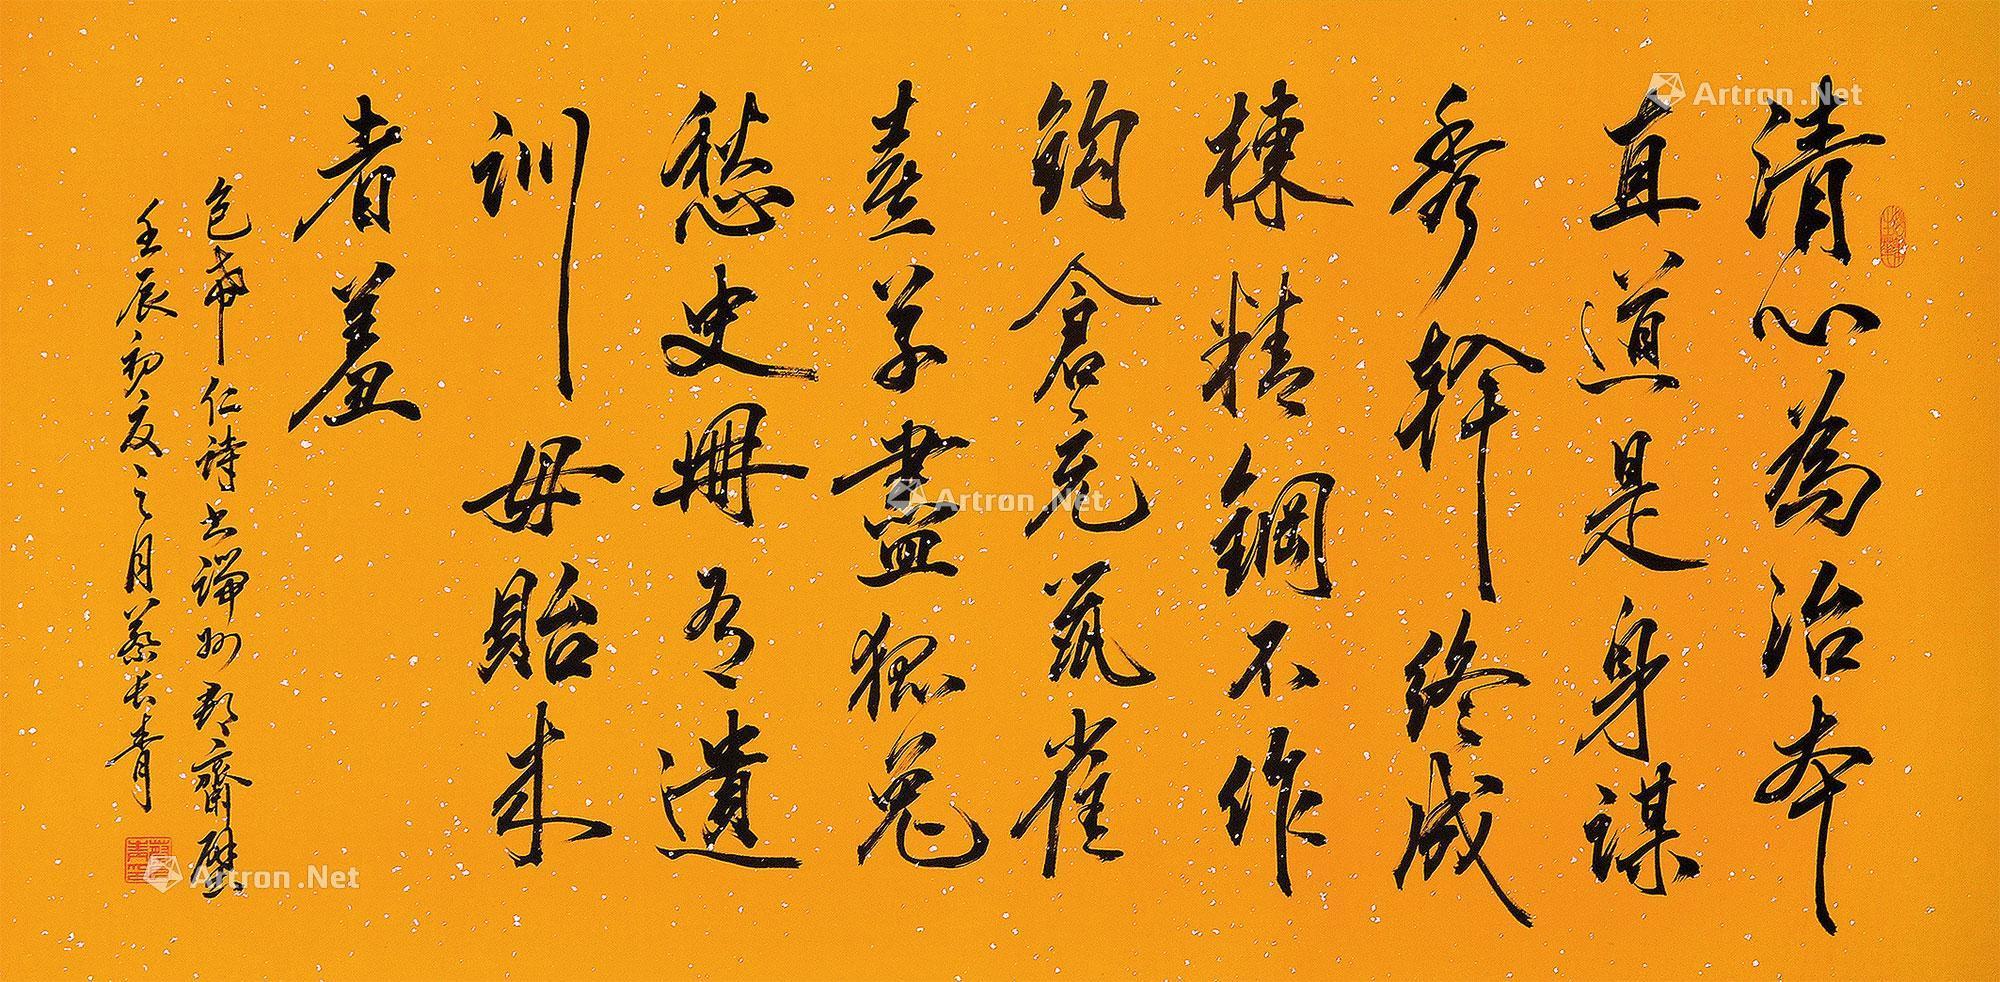 清心为治本
直道是身謀
秀幹终成
棟精鋼不作
鈎倉充鼠雀
喜草盡狐兔
愁史冊有遺
訓毋貽来
者羞
包希仁诗书端州郡斋壁
壬辰初夏之月蔡长青
Artron.Net
Artron.Net
Artron.Net